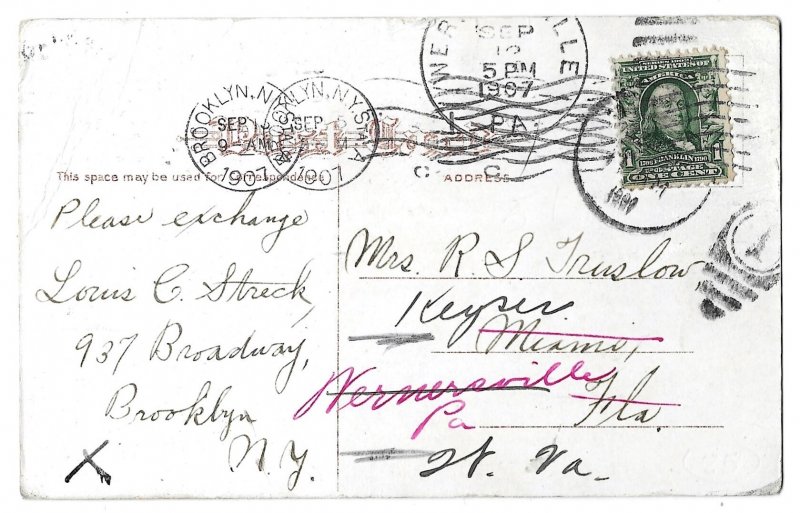 BROOKLYN, N.Y. STA. A
SEP 5
1907
WERNERSVILLE
SEP
5 PM
1907
PA.
SERIES 1902
UNITED STATES OF
AMERICA
1 FRANKLIN 1
POSTAGE
ONE CENT
Post Card
This space may be used for Correspondence
ADDRESS
Please exchange
Louis C. Streck,
937 Broadway,
Brooklyn
N.Y.
X
Mrs. R. S. Truslow,
Keyser
Miami,
Wernersville Fla.
Pa
W. Va.